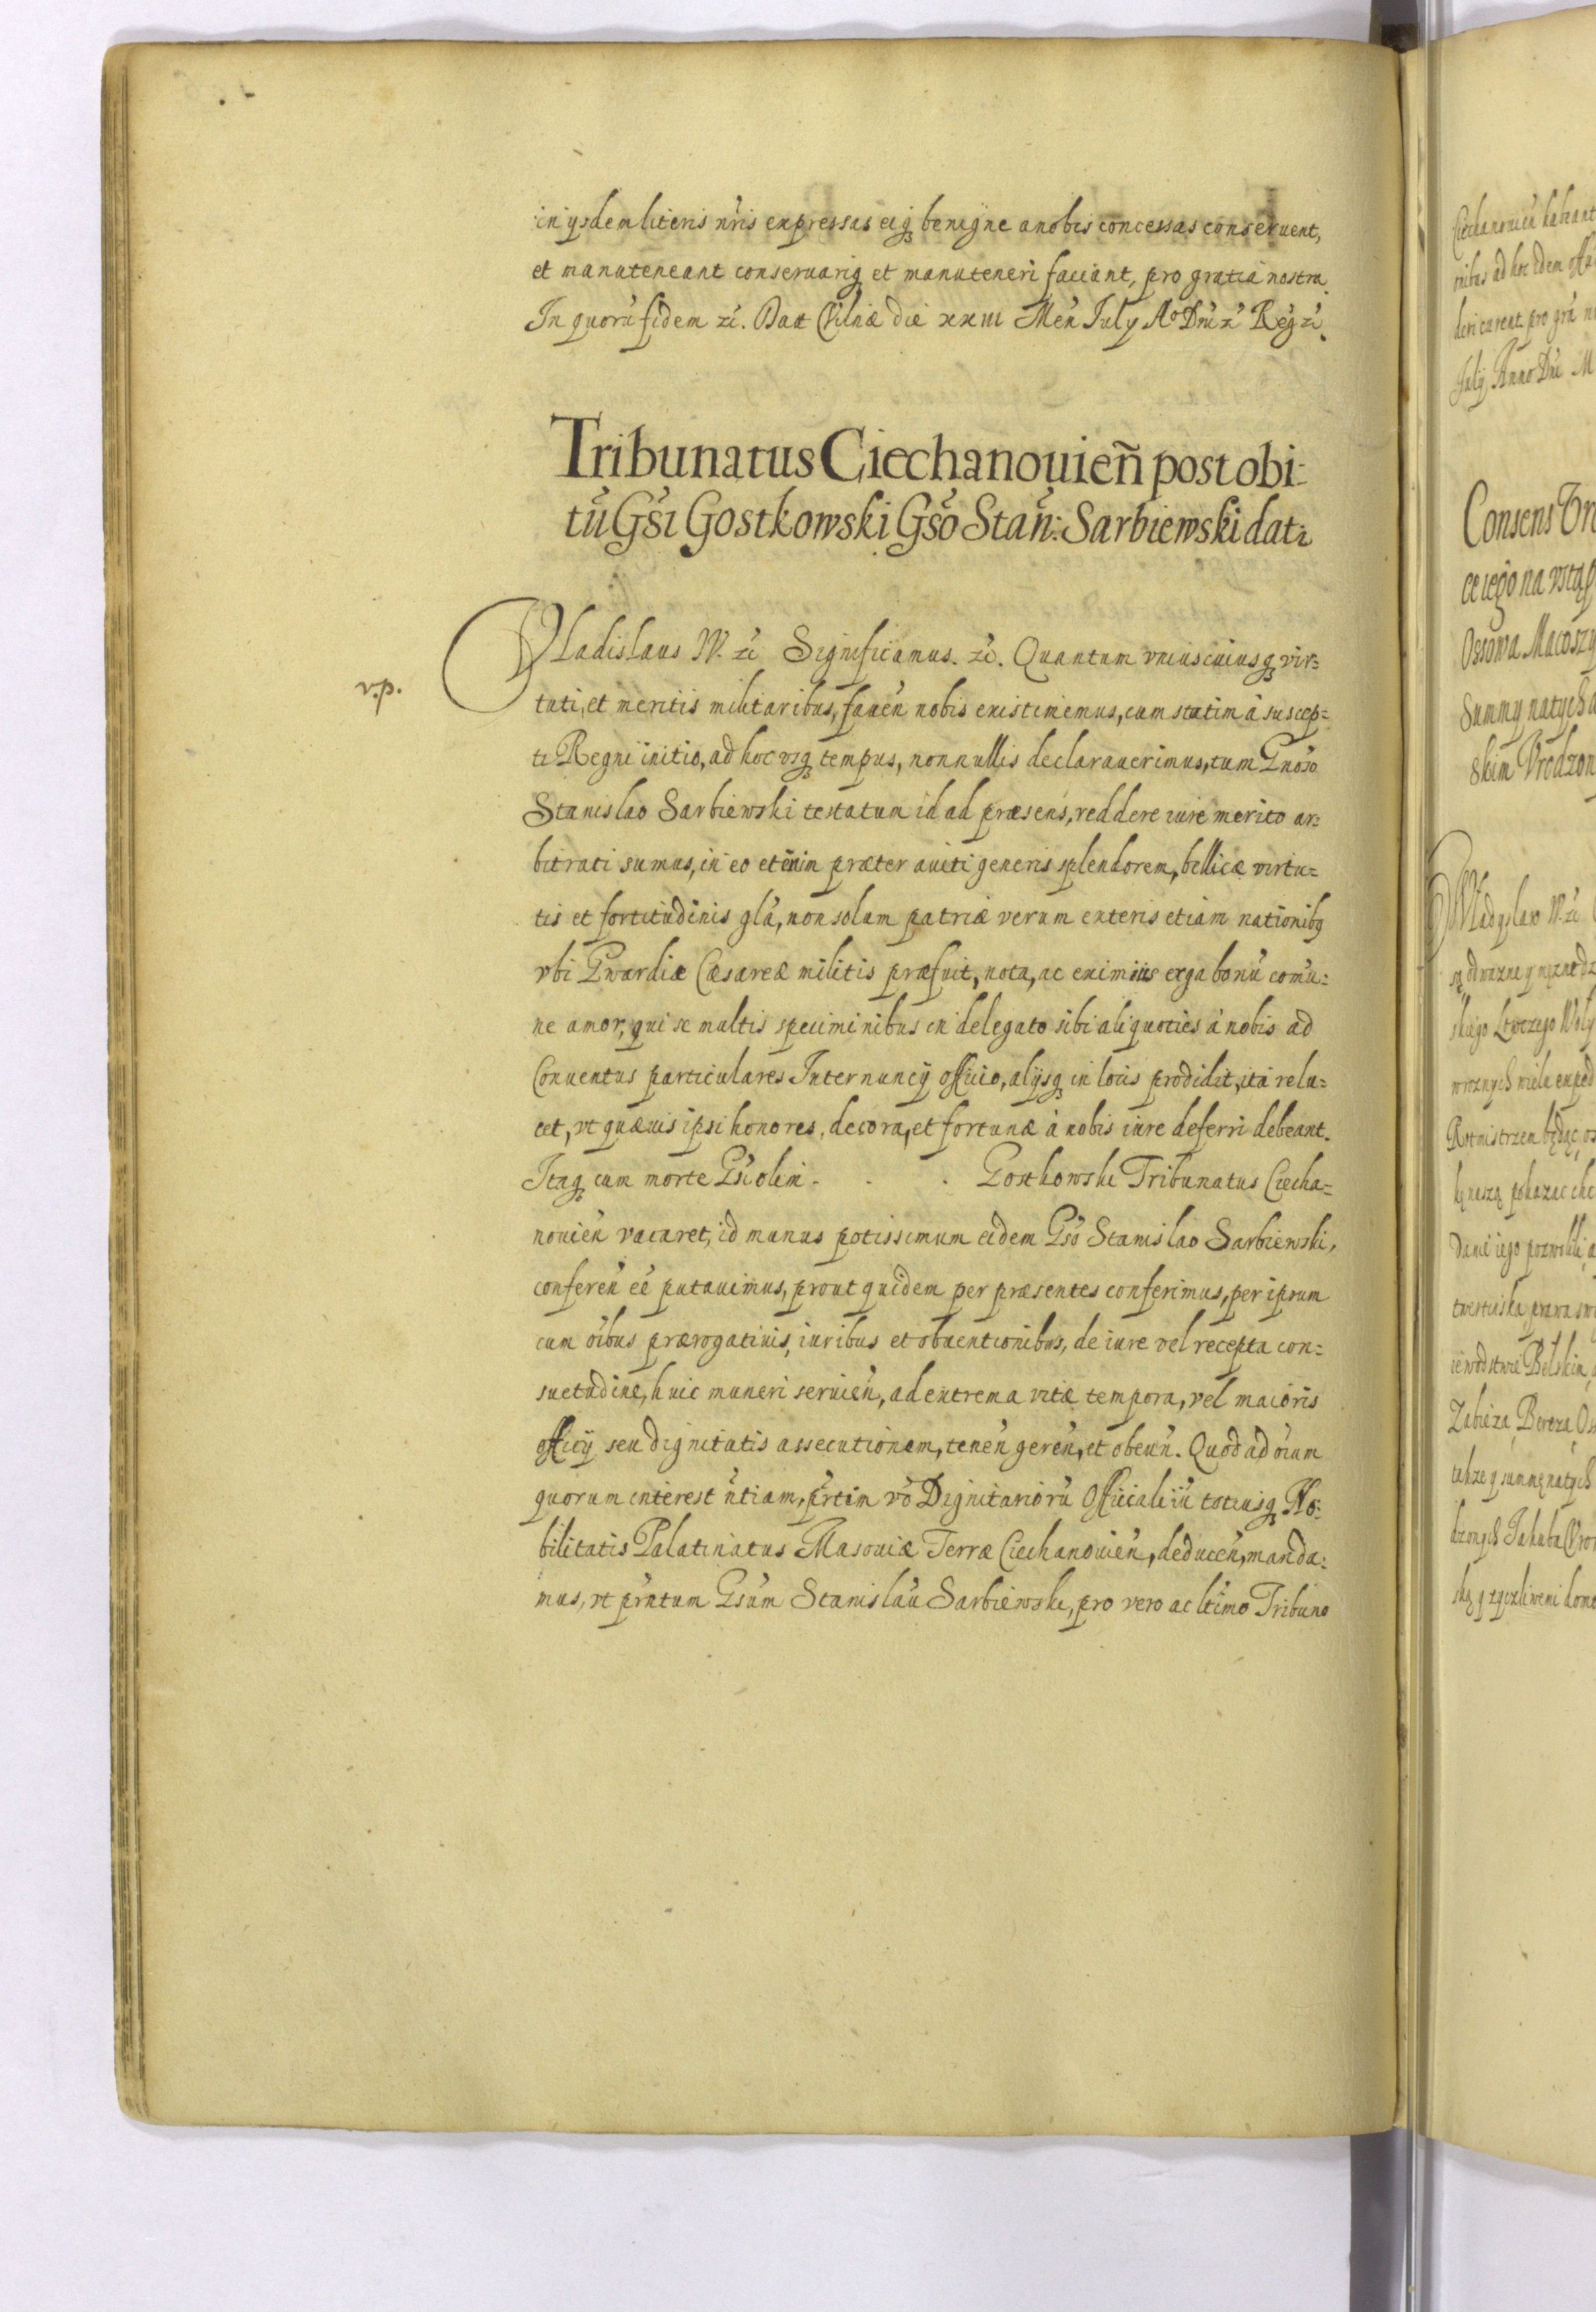 in ijsdem literis nr̃is expressas eiq₃ benigne a nobis concessas conseruent,
et manuteneant conseruariq₃ et manuteneri faciant, pro gratia nostra.
In quorũ fidem zć. Dat Vilnæ die xxiii Meñ July Aº Dnĩ zć Reg̃ zć
Tribunatus Ciechanouień post obi-
tũ Gsĩ Gostkowski Gsõ Stañ: Sarbiewski dat₂
v.p.
Vladislaus IV. zć Significamus. zć. Quantum vniuscuiusq₃ vir=
tuti, et meritis militaribus, faueñ nobis existimemus, cum statim à suscep=
ti Regni initio, ad hoc vsq₃ tempus, nonnullis declarauerimus, tum Gnoso
Stanislao Sarbiewski testatum id ad præsens, reddere iure merito ar=
bitrati sumus, in eo etenim præter auiti generis splendorem, bellicæ virtu=
tis et fortitudinis glã, non solum patriæ verum exteris etiam nationibq
vbi Gwardiæ Cæsareæ militis præfuit, nota, ac eximius erga bonũ comũ=
ne amor, qui se multis speciminibus in delegato sibi aliquoties à nobis ad
Conuentus particulares Internuncij officio, alijsq₃ in locis prodidit, ita relu=
cet, vt quæuis ipsi honores, decora, et fortunæ à nobis iure deferri debeant.
Itaq₃ cum morte Gsĩ olim . . . Gostkowski Tribunatus Ciecha=
nouień vacaret, id munus potissimum eidem Gsõ Stanislao Sarbiewski,
confereñ eẽ putauimus, prout quidem per præsentes conferimus, per ipsum
cum oĩbus prærogatiuis, iuribus et obuentionibus, de iure vel recepta con=
suetudine, huic muneri seruieñ, ad extrema vitæ tempora, vel maioris
officij seu dignitatis assecutionem, teneñ gereñ, et obeuñ. Quod ad oĩum
quorum interest ñtiam, pr̃tim võ Dignitariorũ Officialiũ totiusq₃ No=
bilitatis Palatinatus Masouiæ Terræ Ciechanouień, deduceñ, manda=
mus, vt pr̃ntum Gsũm Stanislaũ Sarbiewski, pro vero ac ltimo Tribuno
Ciechanouień habeant
July Anno Dnĩ M
Consens
ce iego na vstąp
Ossowa Macoszy
Summy natych
skim Vrodzon
Władysław IV. zć